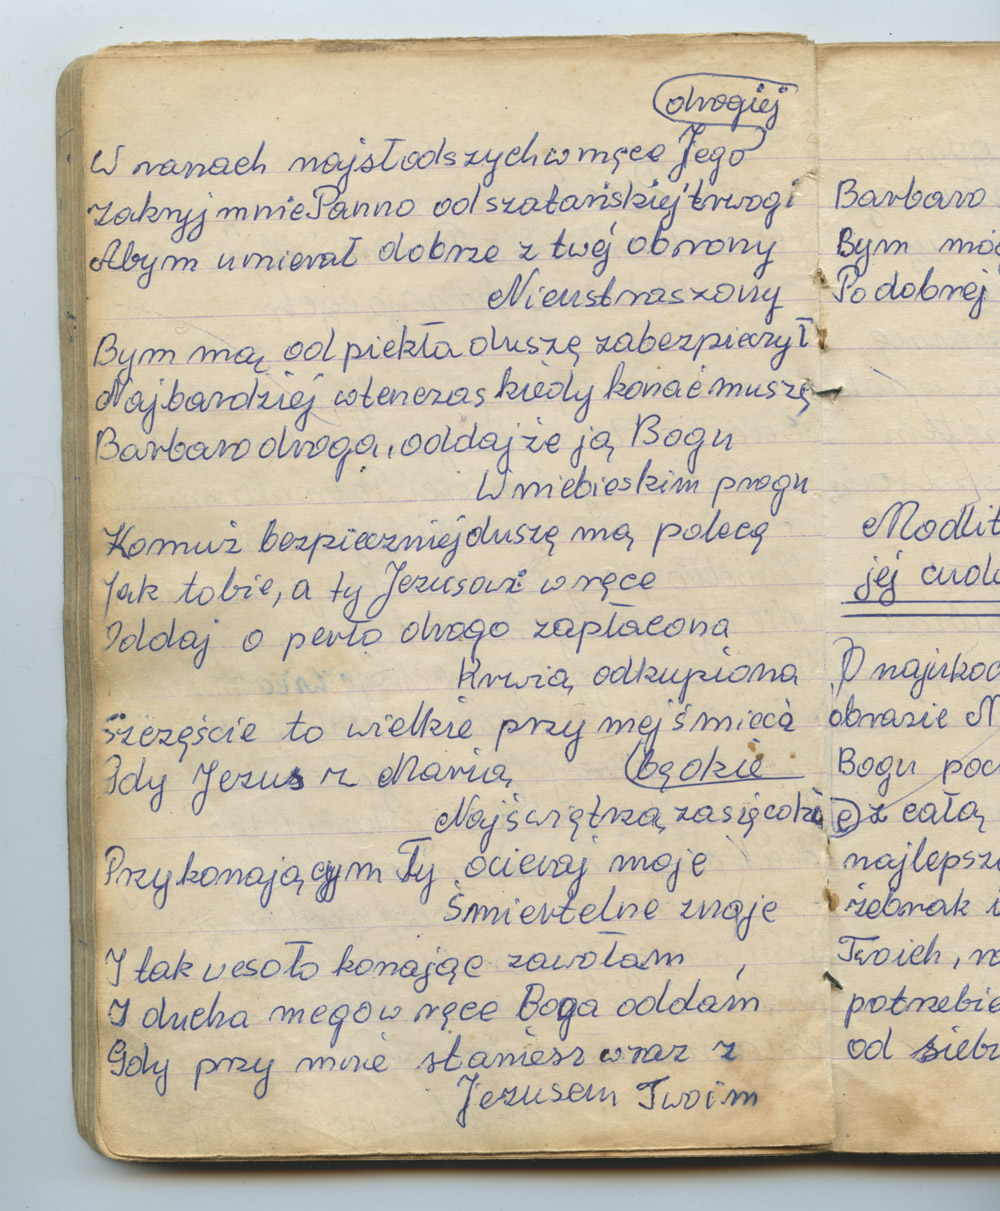 drogiej
W ranach najsłodszych w męce Jego
Zakryj mnie Panno od szatańskiej trwogi
Abym umierał dobrze z twéj obrony
Nieustraszony
Bym mą od piekła duszę zabezpieczył
Najbardziej wtenczas kiedy konać muszę
Barbaro droga, oddajże ją Bogu
W niebieskim progu
Komuż bezpieczniej duszę mą polecą
Jak tobie, a ty Jezusowi w ręce
Oddaj o perło drogo zapłacona
Krwią odkupiona
Szczęście to wielkie przy mej śmierci
Gdy Jezus z Marią będzie
Najświętrzą zasięcohi
Przy konającym Ty ocieraj moje
Śmiertelne znoje
I tak wesoło konając zawołam,
I ducha mego w ręce Boga oddam
Gdy przy mnie staniesz wraz z
Jezusem Twoim
Barbaro
Bym móg
Po dobrej
Modlit
jej cudo
O najukoc
obrazie N
Bogu poc
z całą
najlepsz
żebrak i
Twoich, na
potrzebie
od siebi